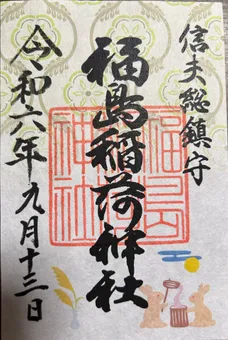 信夫総鎮守
福島稲荷神社
令和六年九月十三日
福島
神社